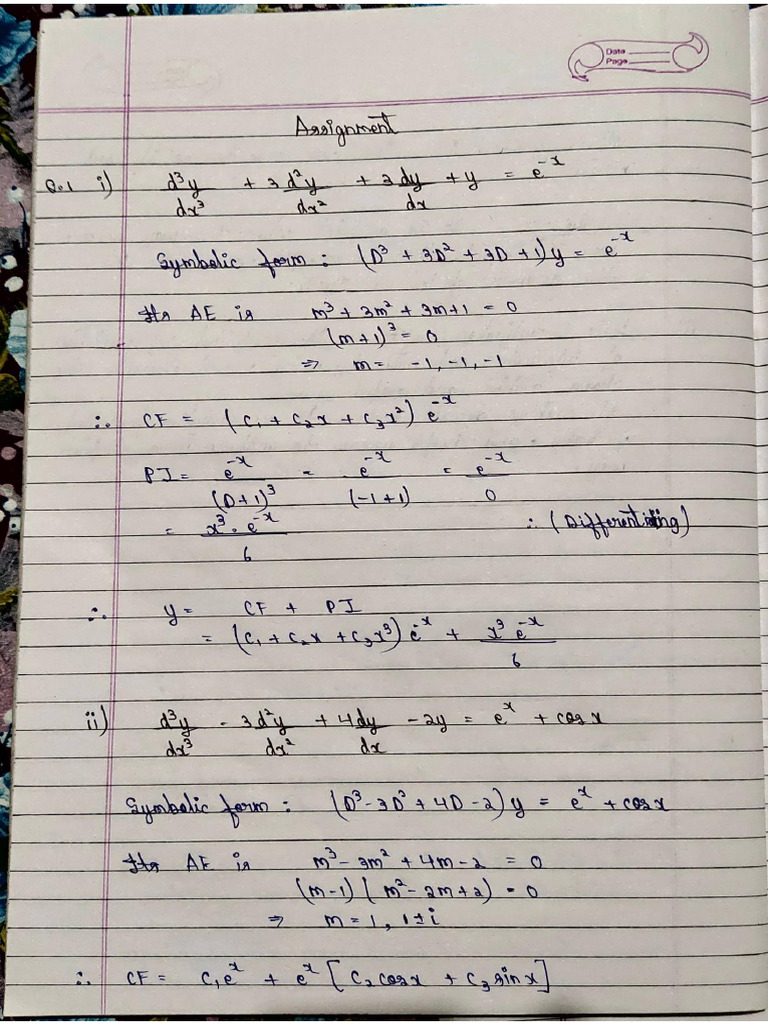 Date
Page
Assignment
Q.1 i) d³y/dx³ + 3 d²y/dx² + 3 dy/dx + y = e^-x
Symbolic form : (D³ + 3D² + 3D + 1)y = e^-x
Its AE is m³ + 3m² + 3m + 1 = 0
(m + 1)³ = 0
⇒ m = -1, -1, -1
∴ CF = (C₁ + C₂x + C₃x²) e^-x
PI = e^-x/(D+1)³ = e^-x/(-1+1) = e^-x/0
= x³·e^-x/6 ∴ (Differentiating)
∴ y = CF + PI
= (C₁ + C₂x + C₃x³) e^-x + x³ e^-x/6
ii) d³y/dx³ - 3 d²y/dx² + 4 dy/dx - 2y = e^x + cos x
Symbolic form : (D³ - 3D² + 4D - 2)y = e^x + cos x
Its AE is m³ - 3m² + 4m - 2 = 0
(m-1) (m² - 2m + 2) = 0
⇒ m = 1, 1±i
∴ CF = C₁e^x + e^x [C₂cos x + C₃ sin x]